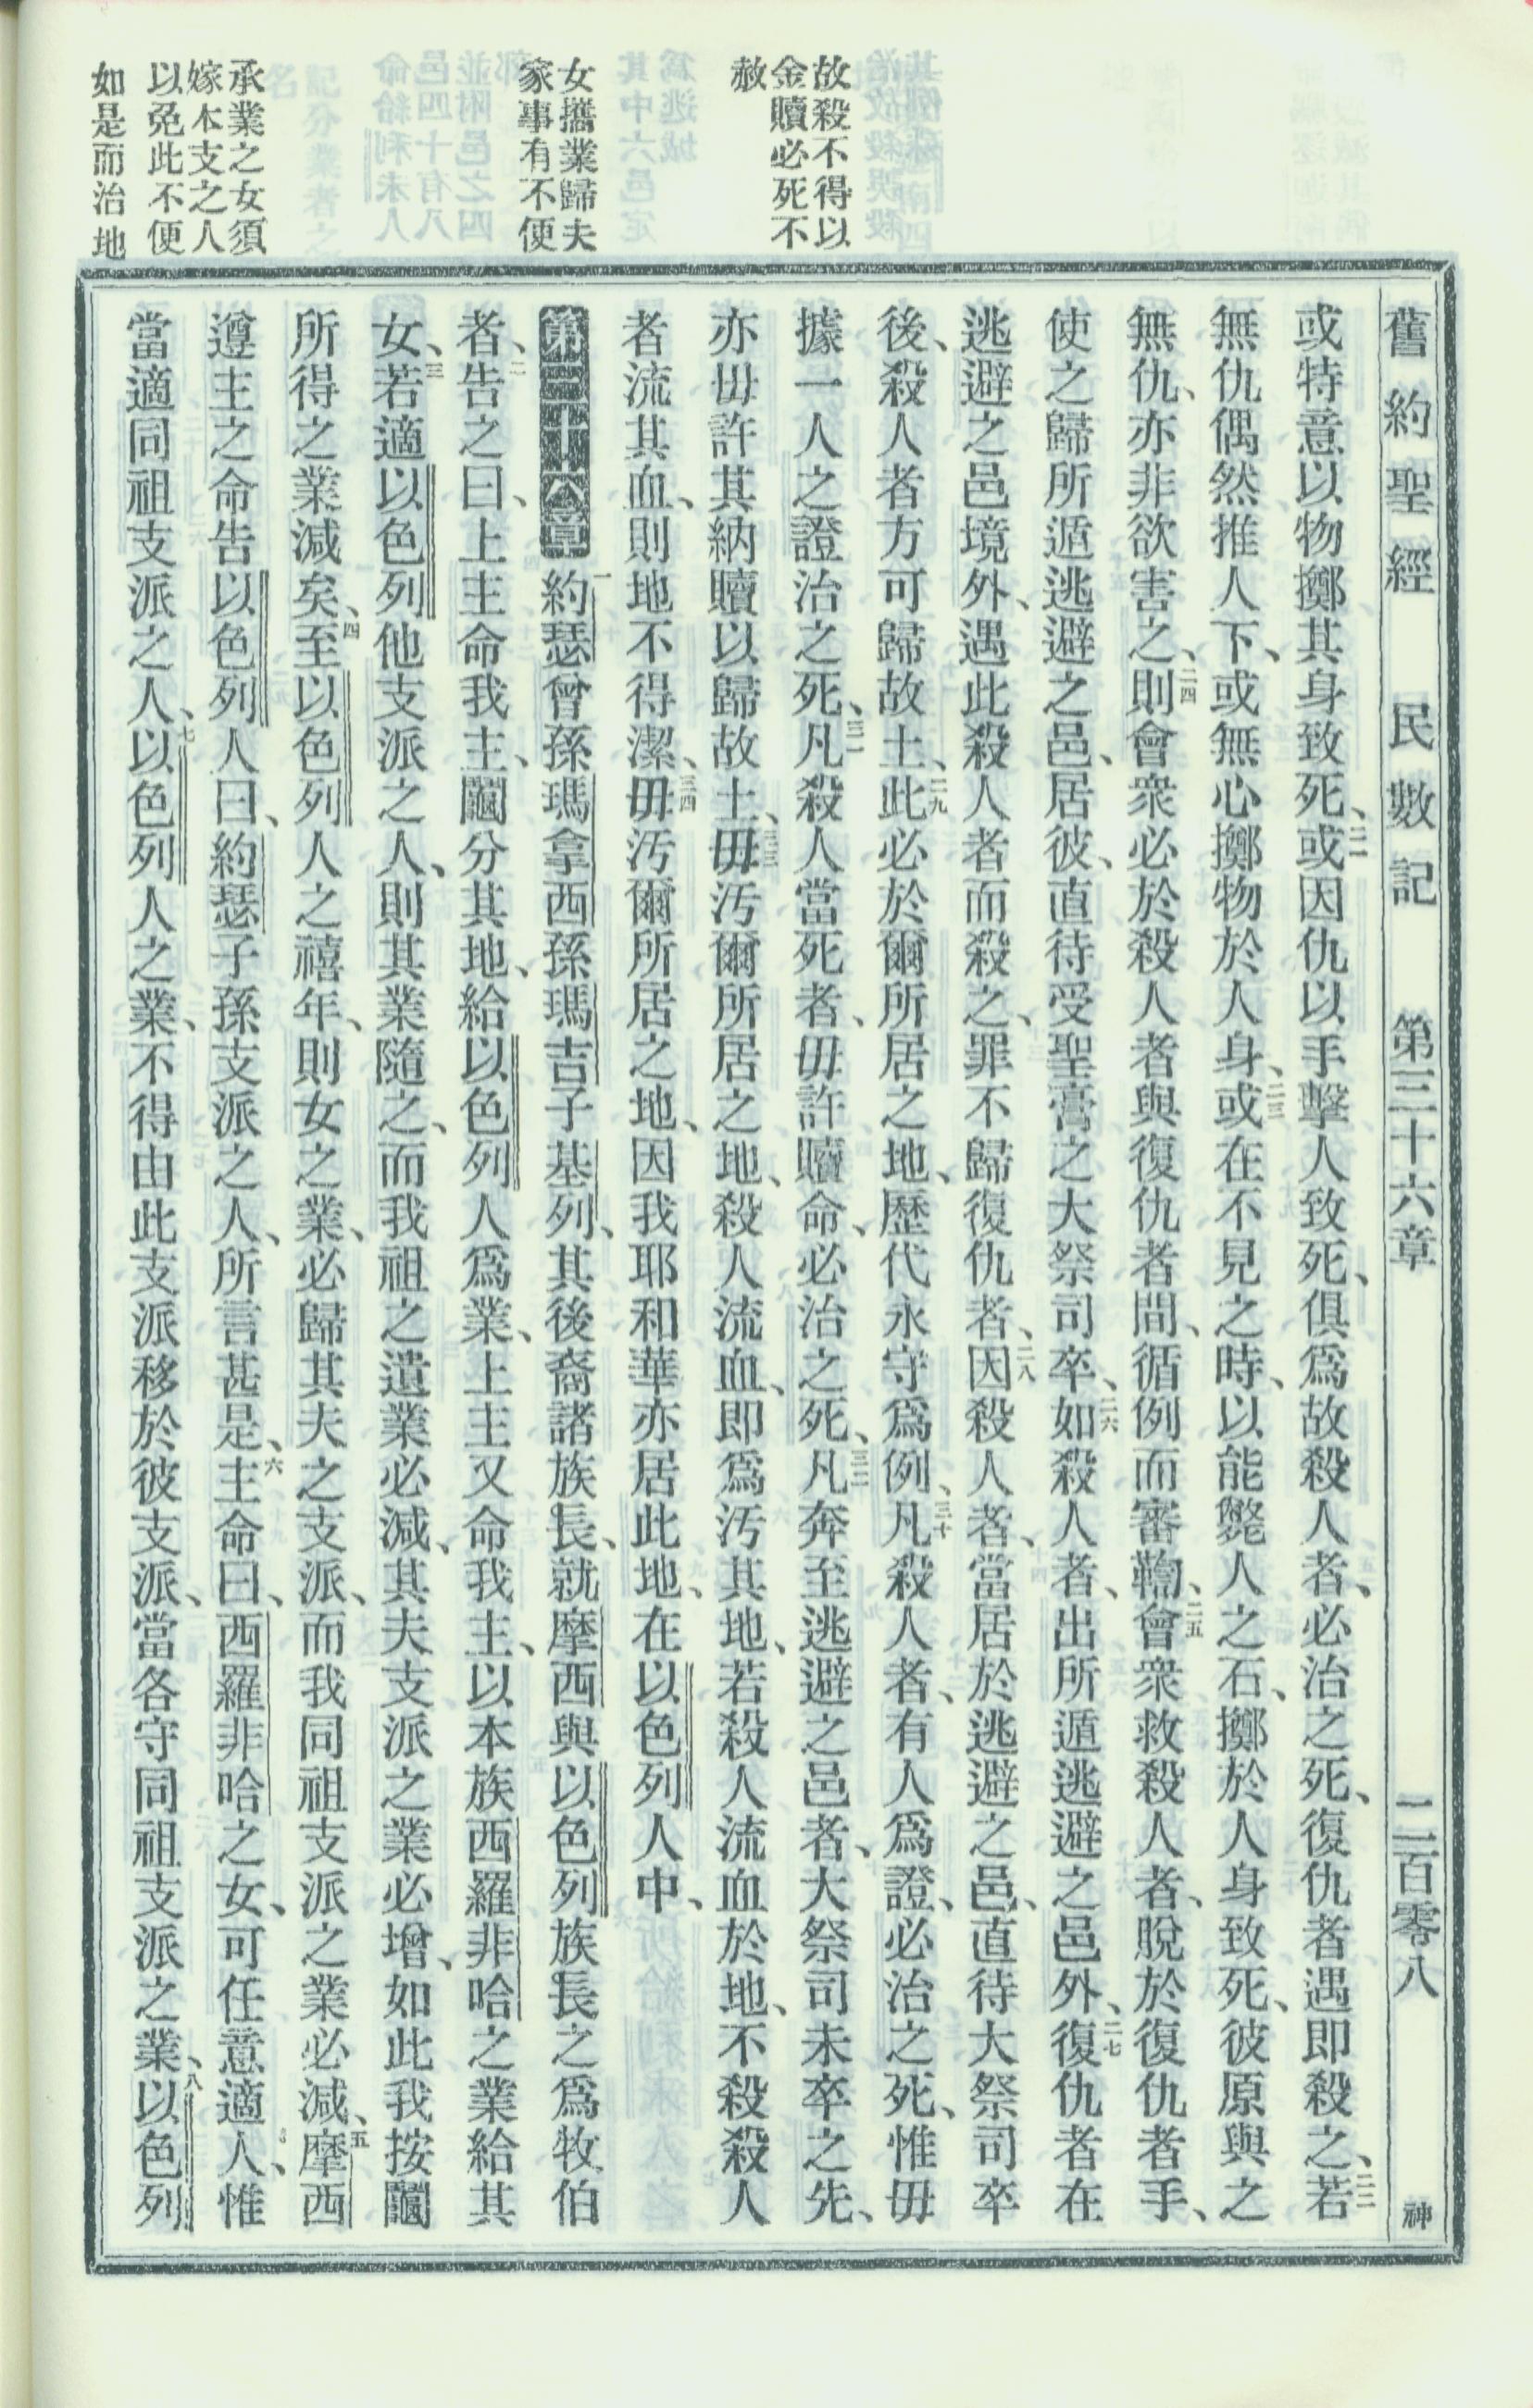 舊約聖經 民數記 第三十六章 二百零八 神
故殺不得以
金贖必死不
赦
女攜業歸夫
家事有不便
承業之女須
嫁本支之人
以免此不便
如是而治地
或特意以物擲其身致死、二一或因仇以手擊人致死、俱爲故殺人者、必治之死、復仇者遇即殺之、二二若
無仇偶然推人下、或無心擲物於人身、二三或在不見之時、以能斃人之石、擲於人身致死、彼原與之
無仇、亦非欲害之、二四則會衆必於殺人者與復仇者間、循例而審鞫、二五會衆救殺人者、脫於復仇者手、
使之歸所遁逃避之邑、居彼、直待受聖膏之大祭司卒、二六如殺人者、出所遁逃避之邑外、二七復仇者在
逃避之邑境外、遇此殺人者而殺之、罪不歸復仇者、二八因殺人者、當居於逃避之邑、直待大祭司卒
後、殺人者方可歸故土、二九此必於爾所居之地、歷代永守爲例、三十凡殺人者、有人爲證、必治之死、惟毋
據一人之證治之死、三一凡殺人當死者、毋許贖命、必治之死、三二凡奔至逃避之邑者、大祭司未卒之先、
亦毋許其納贖以歸故土、三三毋汚爾所居之地、殺人流血、即爲汚其地、若殺人流血於地、不殺殺人
者流其血、則地不得潔、三四毋汚爾所居之地、因我耶和華亦居此地、在以色列人中、
第三十六章 一約瑟曾孫瑪拿西孫瑪吉子基列、其後裔諸族長、就摩西與以色列族長之爲牧伯
者、二告之曰、上主命我主、鬮分其地、給以色列人爲業、上主又命我主、以本族西羅非哈之業給其
女、三若適以色列他支派之人、則其業隨之、而我祖之遺業必減、其夫支派之業必增、如此我按鬮
所得之業減矣、四至以色列人之禧年、則女之業、必歸其夫之支派、而我同祖支派之業必減、五摩西
遵主之命告以色列人曰、約瑟子孫支派之人、所言甚是、六主命曰、西羅非哈之女、可任意適人、惟
當適同祖支派之人、七以色列人之業、不得由此支派移於彼支派、當各守同祖支派之業、八以色列